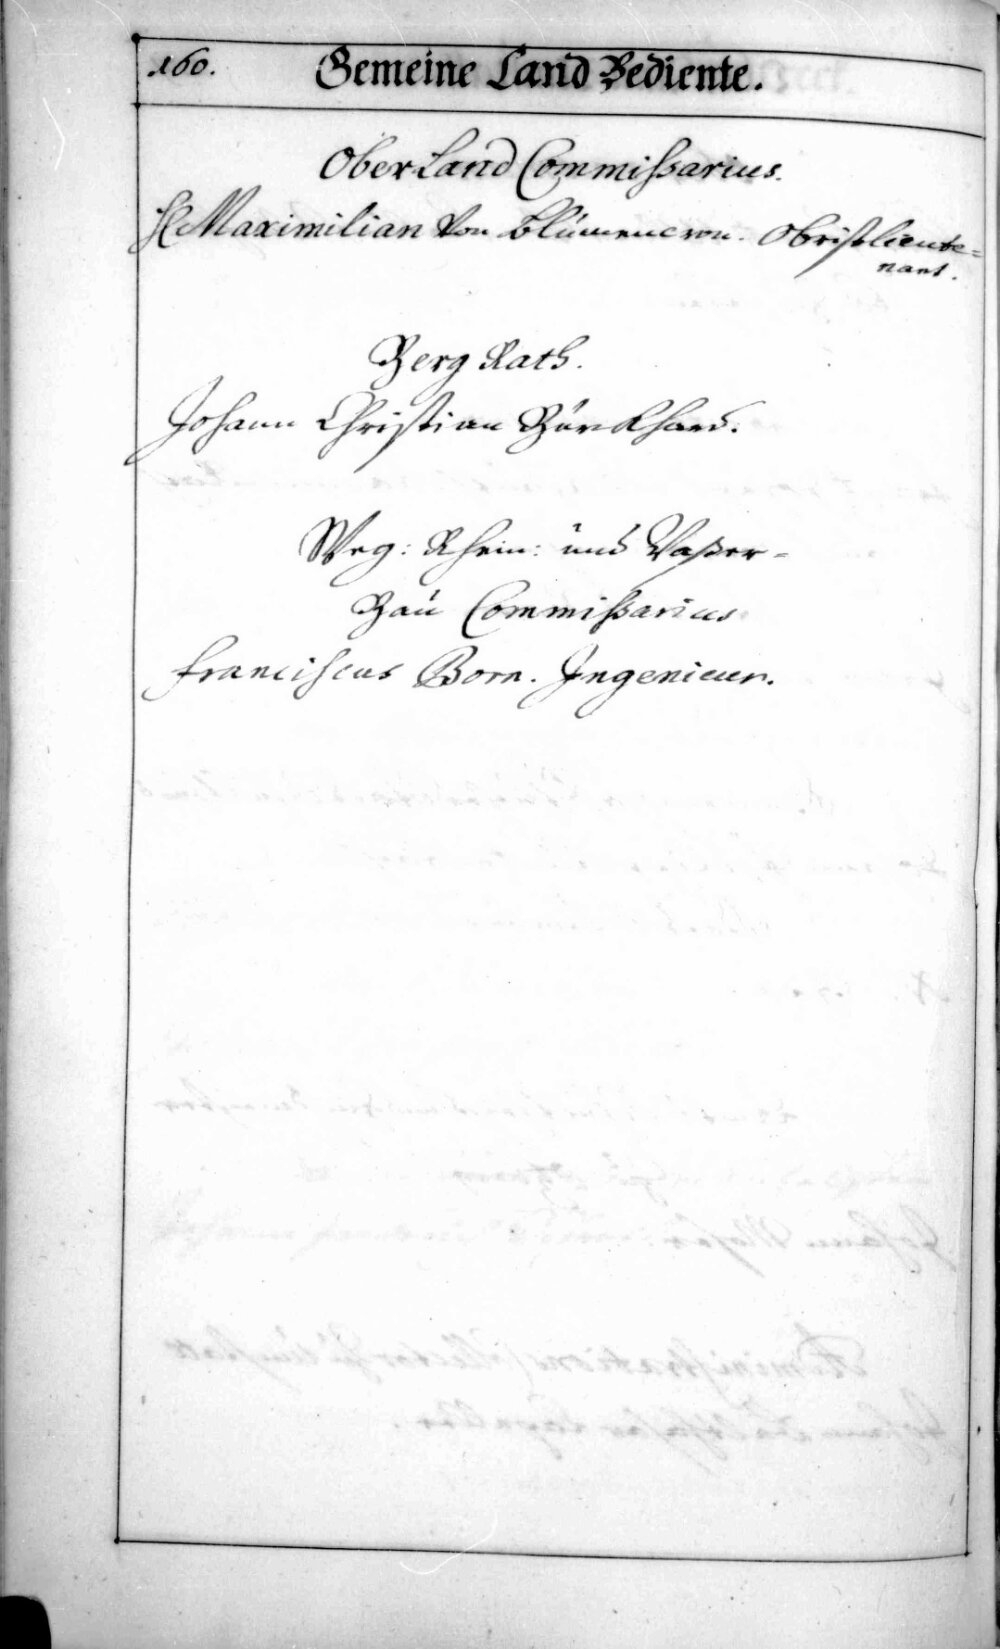 160. Gemeine Land Bediente.
Ober Land Commißarius.
H. Maximilian Von Blümencron. Obristlieute=
nant.
Berg Rath.
Johann Christian Bürckhard.
Weg: Rhein: und Waßer-
Baü Commißarius
Franciscus Born. Ingenieur.